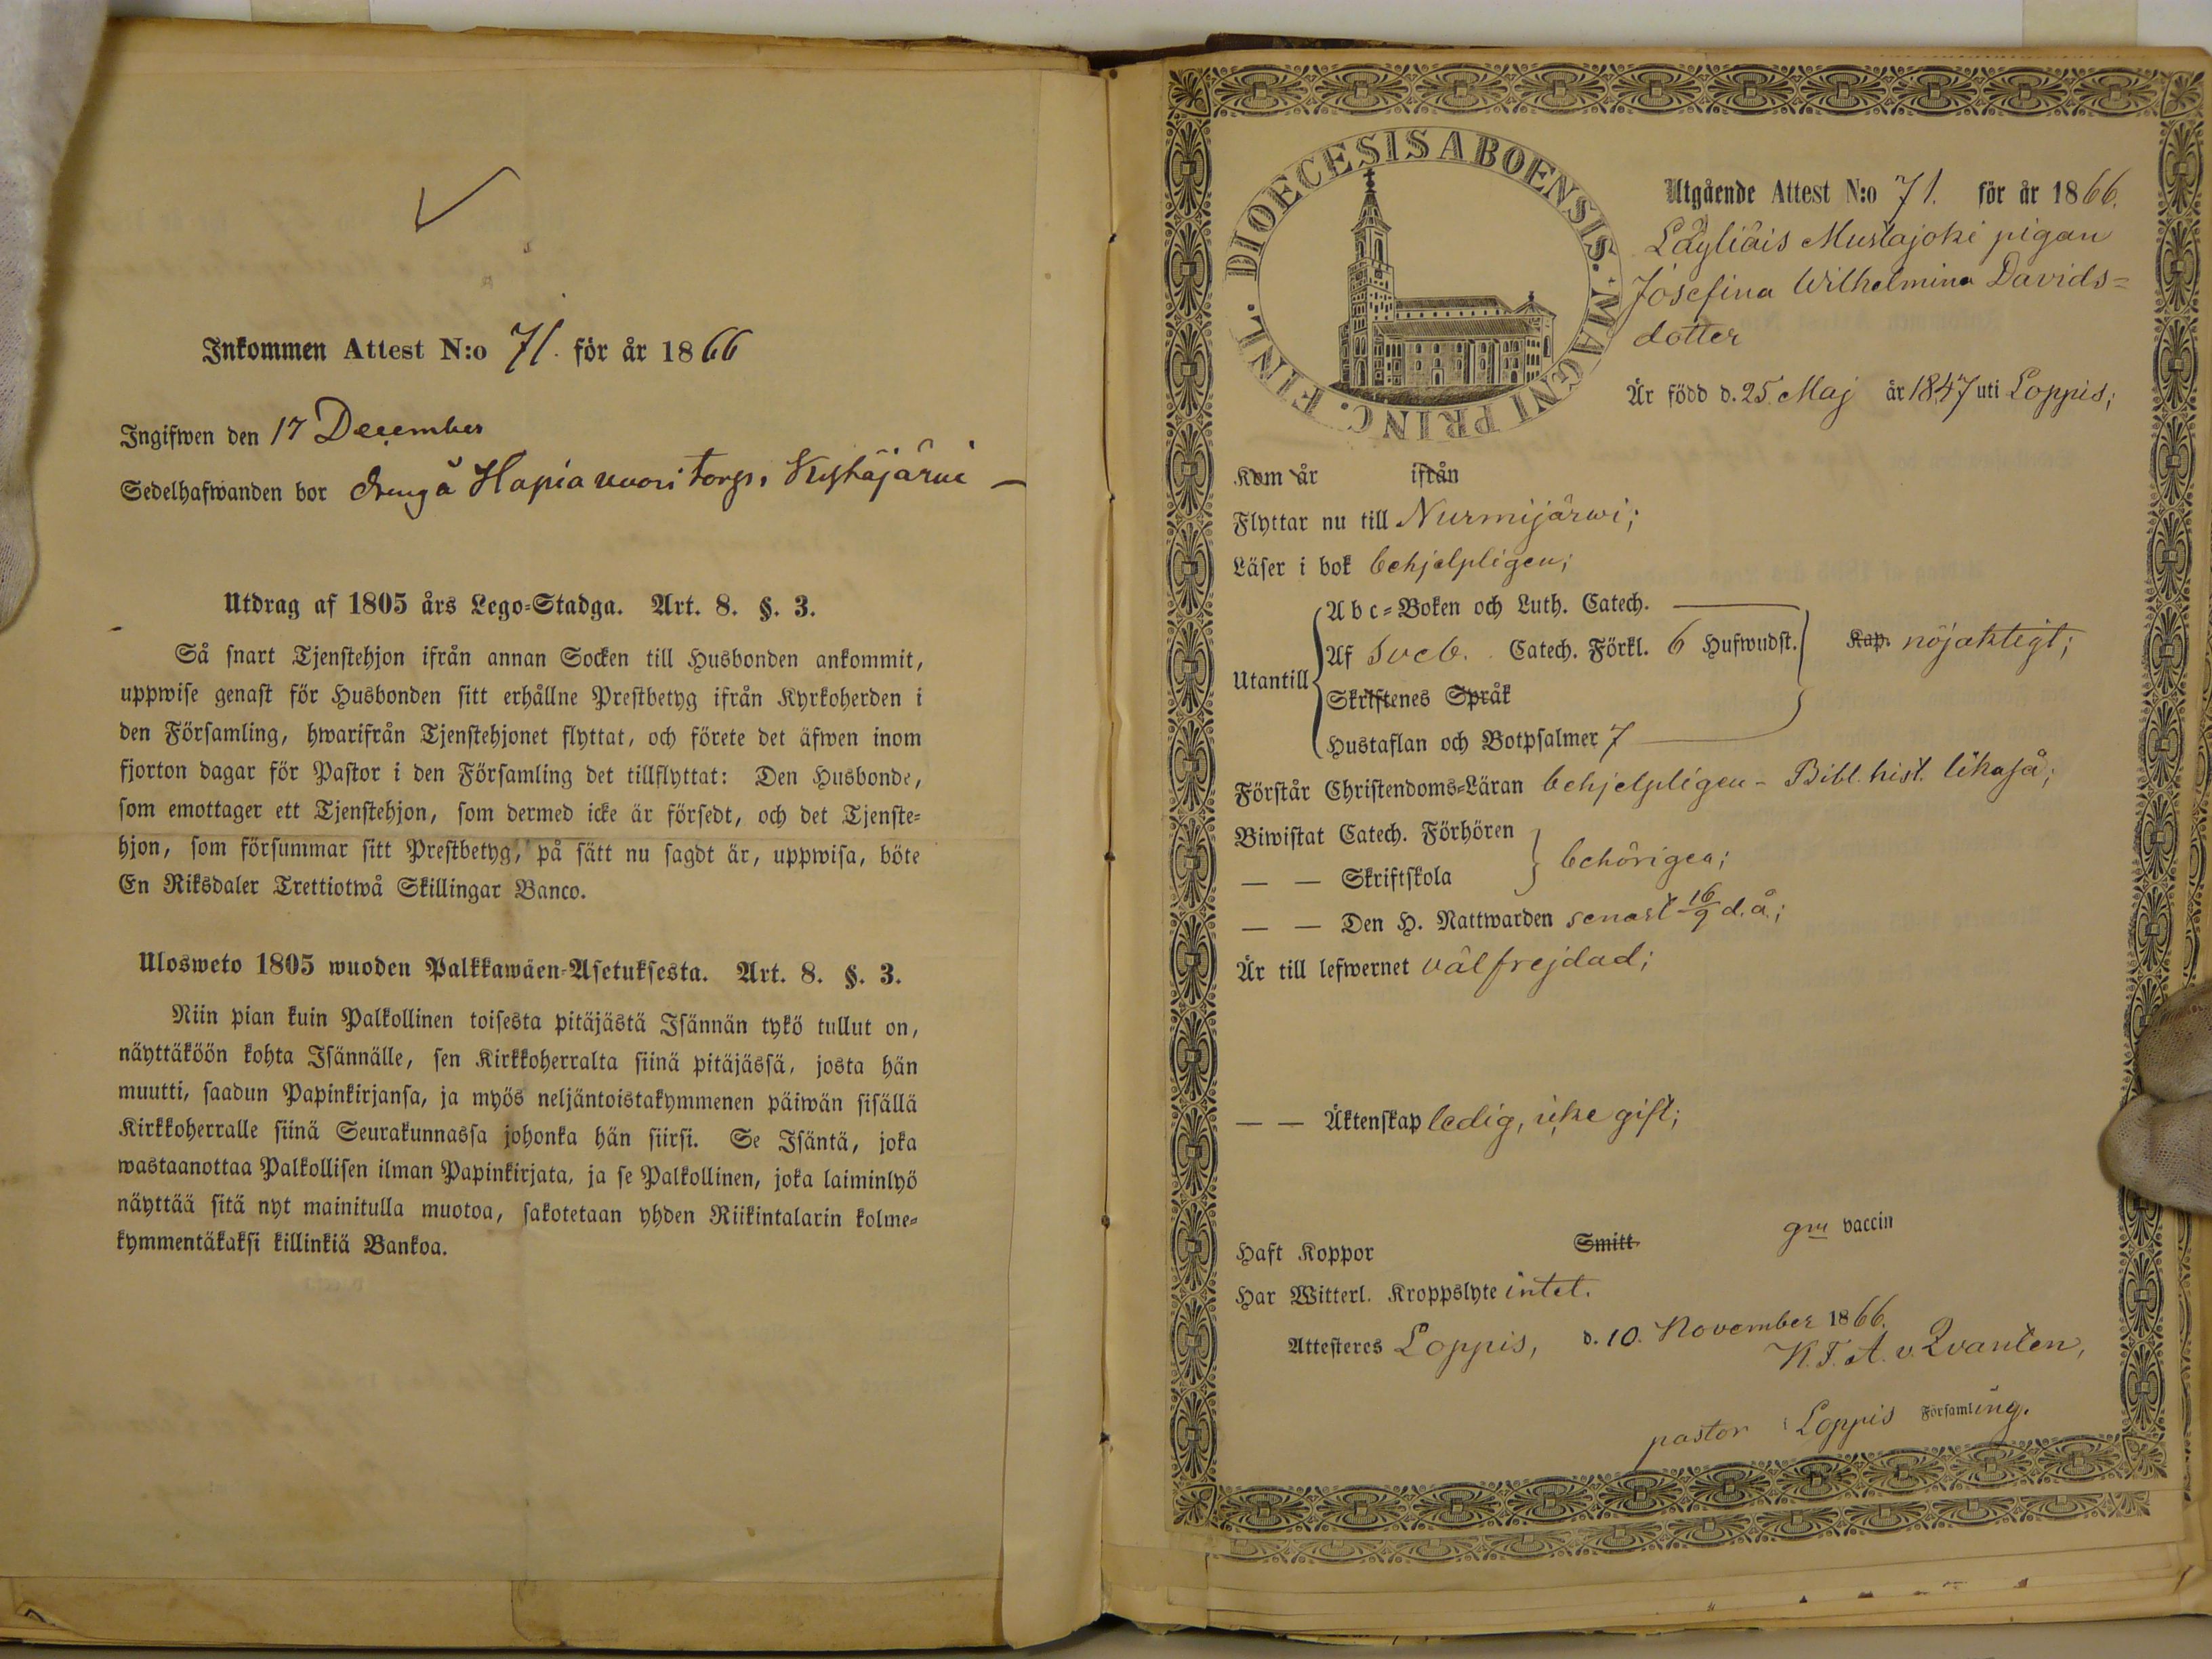 Inkommen Attest N:o 71. för år 1866
Ingifwen den 17 December
Sedelhafwanden bor dreng å Hapiavuori torp i Kyttäjärvi —
Utdrag af 1805 års Lego-Stadga. Art. 8. §. 3.
Så snart Tjenstehjon ifrån annan Socken till Husbonden ankommit,
uppwise genast för Husbonden sitt erhållne Prestbetyg ifrån Kyrkoherden i
den Församling, hwarifrån Tjenstehjonet flyttat, och förete det äfwen inom
fjorton dagar för Pastor i den Församling det tillflyttat: Den Husbonde,
som emottager ett Tjenstehjon, som dermed icke är försedt, och det Tjenste-
hjon, som försummar sitt Prestbetyg, på sätt nu sagdt är, uppwisa, böte
En Riksdaler Trettiotwå Skillingar Banco.
Ulosweto 1805 wuoden Palkkawäen-Asetuksesta. Art. 8. §. 3.
Niin pian kuin Palkollinen toisesta pitäjästä Isännän tykö tullut on,
näyttäköön kohta Isännälle, sen Kirkkoherralta siinä pitäjässä, josta hän
muutti, saadun Papinkirjansa, ja myös neljäntoistakymmenen päiwän sisällä
Kirkkoherralle siinä Seurakunnassa johonka hän siirsi. Se Isäntä, joka
wastaanottaa Palkollisen ilman Papinkirjata, ja se Palkollinen, joka laiminlyö
näyttää sitä nyt mainitulla muotoa, sakotetaan yhden Riikintalarin kolme-
kymmentäkaksi killinkiä Bankoa.
DIOECESIS ABOENSIS. MAGNI PRINC. FINL.
Utgående Attest N:o 71. för år 1866.
Läyliäis Mustajoki pigan
Josefina Wilhelmina Davids=
dotter
Är född d. 25. Maj år 1847 uti Loppis;
Kom år ifrån
Flyttar nu till Nurmijärwi;
Läser i bok behjelpligen;
Abc-Boken och Luth. Catech.
Utantill Af Sveb. Catech. Förkl. 6 Hufwudst. Kap. nöjaktigt;
Skriftenes Språk
Hustaflan och Botpsalmer 7
Förstår Christendoms-Läran behjelpligen - Bibl. hist. likaså;
Biwistat Catech. Förhören
— — Skriftskola behörigen;
— — Den H. Nattwarden senast 16/9 d.å.;
Är till lefwernet välfrejdad;
— — Äktenskap ledig, icke gift;
Haft Koppor Smitt gm vaccin
Har Witterl. Kroppslyte intet.
Attesteres Loppis, d. 10. November 1866.
K. F. A. v. Qvanten,
pastor i Loppis Församling.